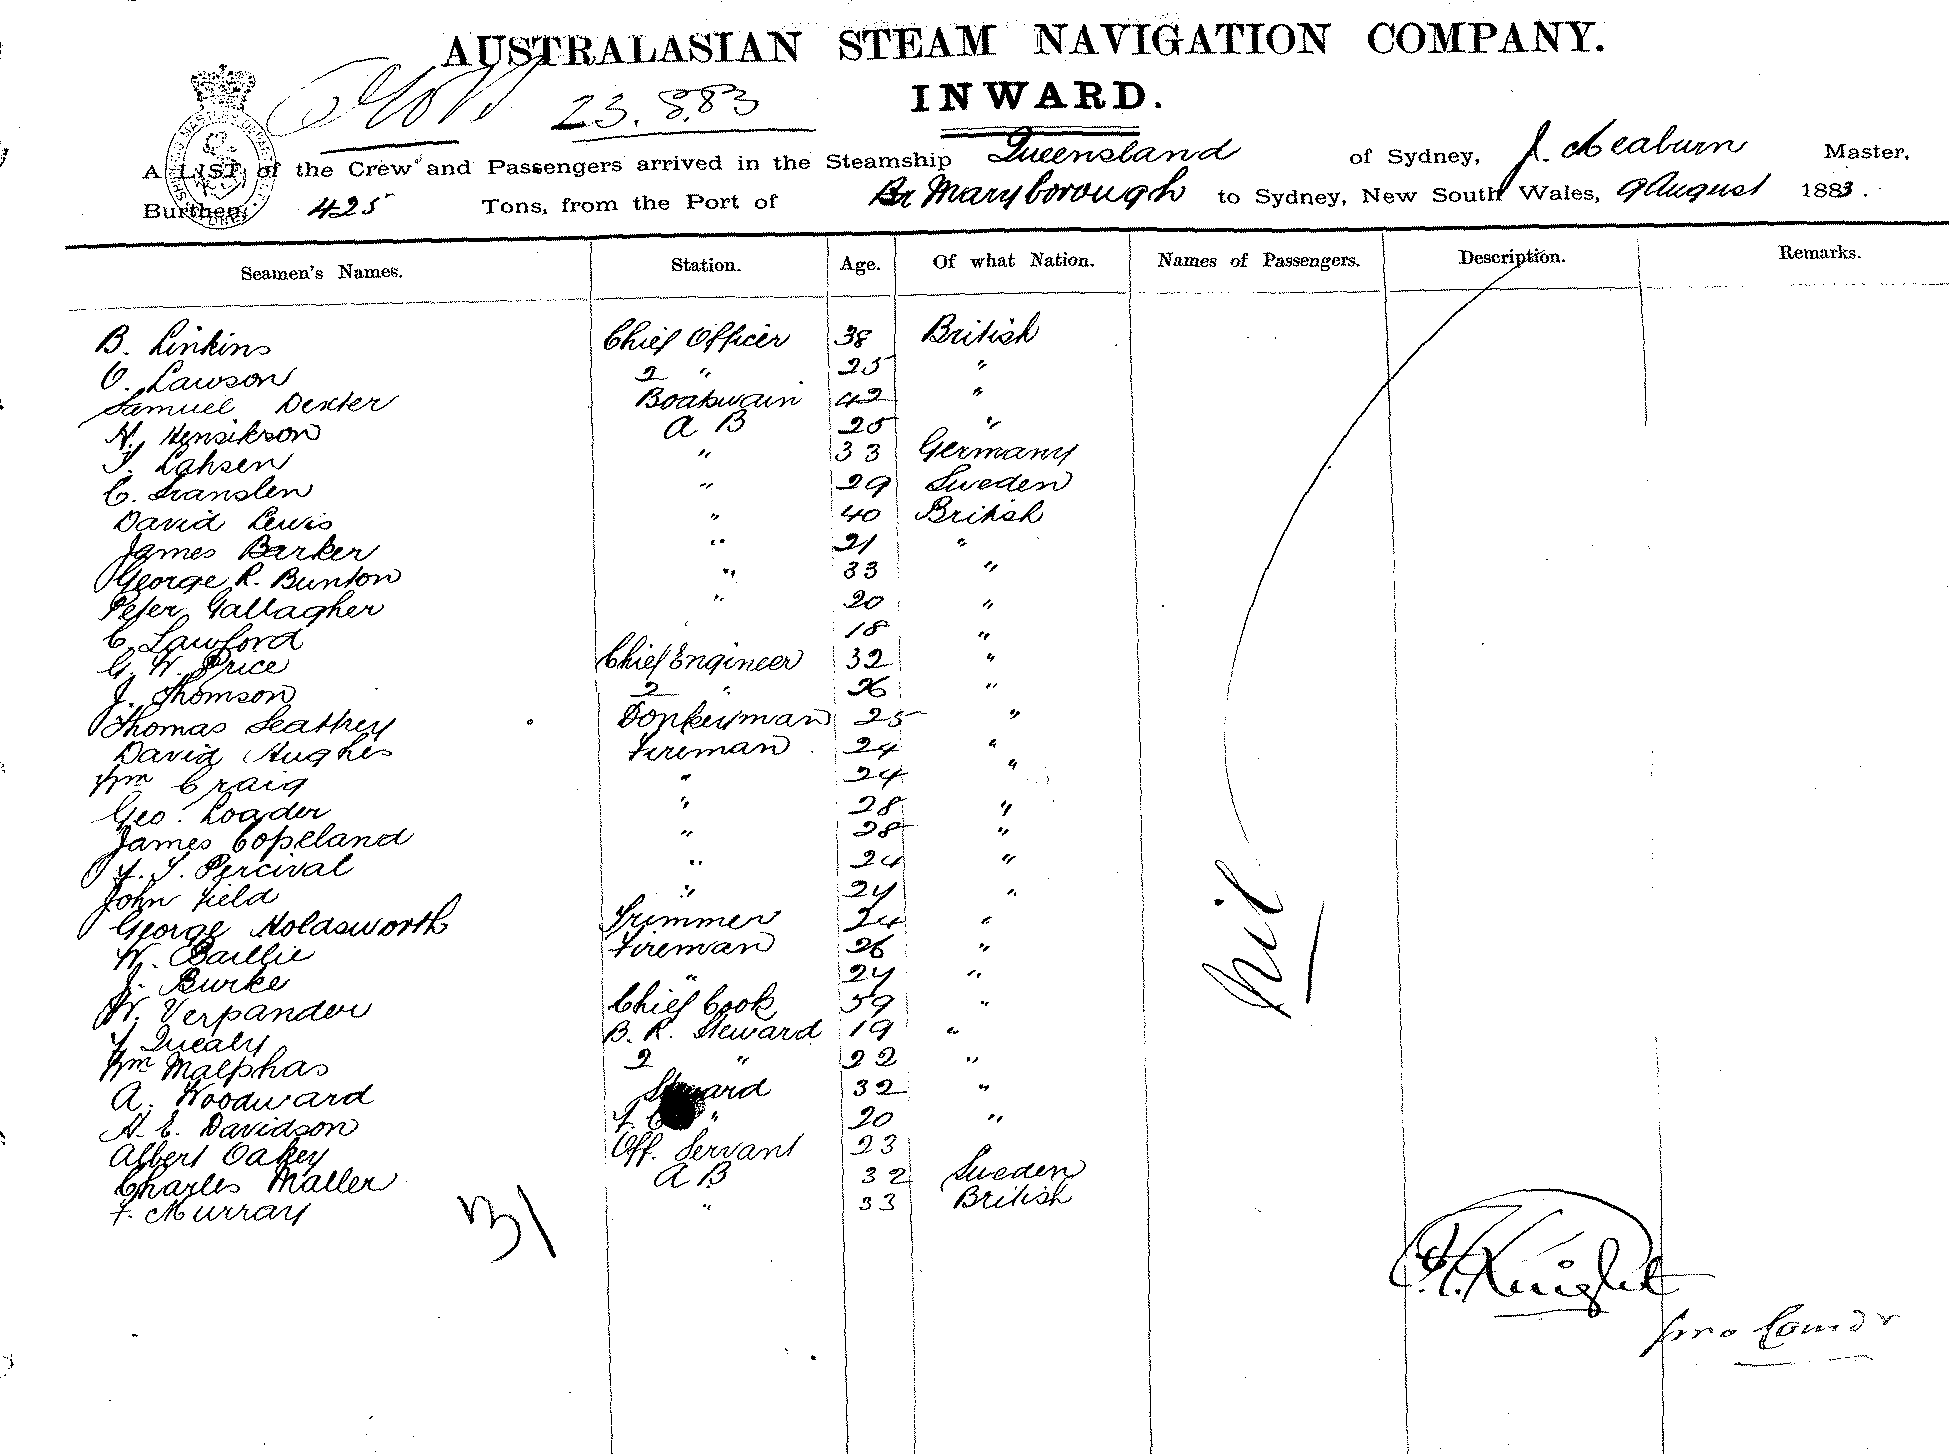 AUSTRALASIAN STEAM NAVIGATION COMPANY.
23.8.83 INWARD.
A LIST of the Crew and Passengers arrived in the Steamship Queensland of Sydney, J. Meaburn Master,
Burthen, 425 Tons, from the Port of Maryborough to Sydney, New South Wales, 9 August 1883.
Seamen's Names. Station. Age. Of what Nation. Names of Passengers. Description. Remarks.
B. Linkins Chief Officer 38 British
O. Lawson 2 " 25 "
Samuel Dexter Boatswain 42 "
H. Hensikson A B 25 "
Lahsen " 33 Germany
C. " 29 Sweden
David Lewis " 40 British
James Barker " 21 "
George R. Bunton " 33 "
Peter Gallagher " 20 "
C. Lawford 18 "
G. W. Price Chief Engineer 32 "
J. Thomson 2 " 26 "
Thomas Seattrey Donkeyman 25 "
David Hughes Fireman 24 "
Wm Craig " 24 "
Geo. Loader " 28 "
James Copeland " 28 "
Percival " 24 "
John Field " 24 "
George Holdsworth Trimmer 24 "
W. Baillie Fireman 26 "
J. Burke " 24 "
W. Verpander Chief Cook 59 "
Quealy B. R. Steward 19 "
Wm Malphas 2 " 22 "
A. Woodward Steward 32 "
H. E. Davidson " 20 "
Albert Oakey Off. Servant 23
Charles Maller A B 32 Sweden
F. Murray " 33 British
31
Nil
Knight